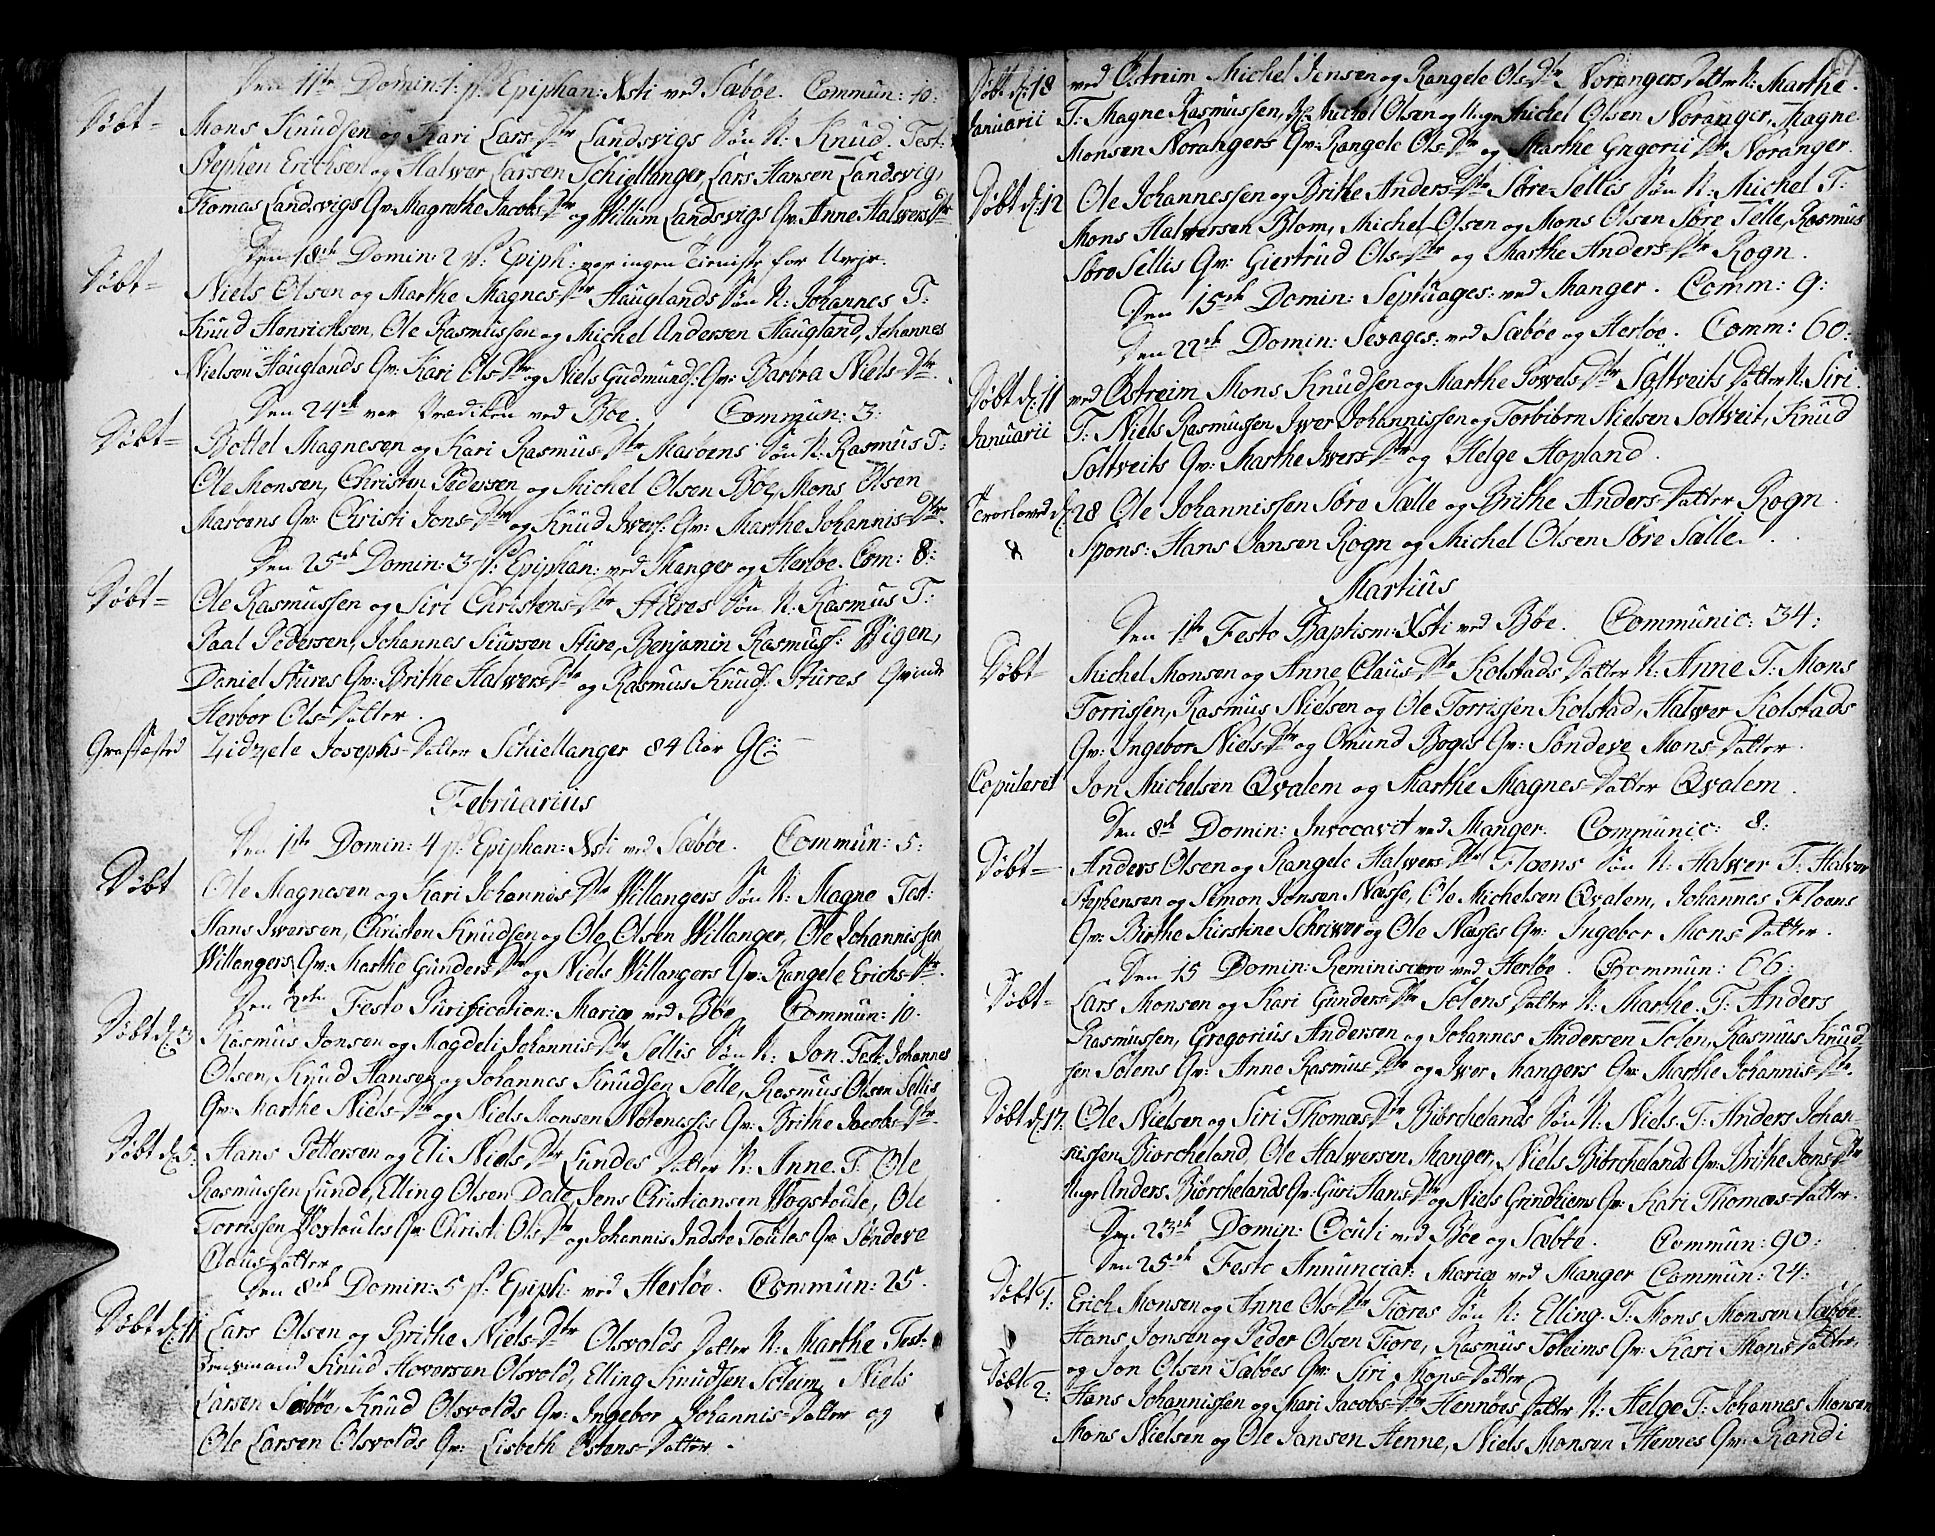 Den 11te Domin: 1. p: Epiphan: Xsti ved Sæbøe. Commun: 10:
Døbt= Mons Knudsen og Kari Lars Dtr Landsvigs Søn N: Knud. Test:
Stephen Erichsen og Halwer Larsen Schiellanger, Lars Hansen Landsvig,
Tomas Landsvigs Qv: Magrethe Jacobs Dtr og Willum Landsvigs Qv: Anne Halvers Dtr
Den 18de Domin: 2 p: Epiph: var ingen Tieniste for Uveir.
Døbt= Niels Olsen og Marthe Magnes Dtr Hauglands Søn N: Johannes T:
Knud Henrichsen, Ole Rasmussen og Michel Andersen Haugland, Johannes
Nielsen Hauglands Qv: Kari Ols Dtr og Niels Gudmunds: Qv: Barbra Niels Dtr.
Den 24de var Prædiken ved Bøe. Commun: 3:
Døbt= Bottel Magnesen og Kari Rasmus Dtr Marøens Søn N: Rasmus T:
Ole Monsen, Christen Pedersen og Michel Olsen Bøe, Mons Olsen
Marøens Qv: Christi Jons Dtr og Knud Ivers: Qv: Marthe Johannis Dtr.
Den 25de Domin: 3 p: Epiphan: ved Manger og Herløe. Com: 8:
Døbt= Ole Rasmussen og Siri Christens Dtr Stures Søn N: Rasmus T:
Paal Pedersen, Johannes Siursen Sture, Benjamin Rasmuss: Wigen,
Daniel Stures Qv: Brithe Halwers Dtr og Rasmus Knuds: Stures Qvinde
Herbor Ols Datter.
Grafæsted Zidzele Josephs Datter Schiellanger 84 Aar Gl:
Februarius
Den 1te Domin: 4 p: Epiphan: Xsti ved Sæbøe. Commun: 5:
Døbt Ole Magnesen og Kari Johannis Dtr Willangers Søn N: Magne Test:
Hans Iversen, Christen Knudsen og Ole Olsen Willanger, Ole Johannissen
Willangers Qv: Marthe Gunders Dtr og Niels Willangers Qv: Rangele Erichs Dtr.
Den 2den Festo Purification: Mariæ ved Bøe Commun: 10.
Døbt d: 3 Rasmus Jonsen og Magdeli Johannis Dtr Sellis Søn N: Jon. Test: Johannes
Olsen, Knud Hansen og Johannes Knudsen Selle, Rasmus Olsen Sellis
Qv: Marthe Niels Dtr og Niels Monsen Qv: Brithe Jacobs Dtr.
Døbt d: Hans Pettersen og Eli Niels Dtr Lundes Datter N: Anne. T: Ole
Rasmussen Lunde, Elling Olsen Dale, Jens Christiansen, Ole
Torrissen Qv: Christi Ols Dtr og Johannis Indste Toules Qv: Søndeve
Claus Datter
Den 8de Domin: 5 p: Epiph: ved Herløe. Commun: 25.
Døbt d: 11 Lars Olsen og Brithe Niels Dtr Olsvolds Datter N: Marthe Test:
Lensmand Knud Hoversen Olsvold, Elling Knudsen Soleim, Niels
Larsen Sæbøe, Knud Olsvolds Qv: Ingebor Johannis Datter og
Ole Larsen Olsvolds Qv: Lisbeth Østens Datter.
Døbt d: 18 Januarii ved Østreim Michel Jensen og Rangele Ols Dtr Norangers Datter N: Marthe.
T: Magne Rasmussen, Michel Olsen og Michel Olsen Noranger, Magne
Monsen Norangers Qv: Rangele Ols Dtr og Marthe Gregorii Dtr Noranger.
Døbt d: 12 Ole Johannessen og Brithe Anders Dtr Søre Sellis Søn N: Michel T:
Mons Halversen Blom, Michel Olsen og Mons Olsen Søre Selle, Rasmus
Søre Sellis Qv: Giertrud Ols Dtr og Marthe Anders Dtr Rogn.
Den 15de Domin: Septuages: ved Manger. Comm: 9:
Den 22de Domin: Sexages: ved Sæbøe og Herløe. Comm: 60:
Døbt d: 11 Januarii ved Østreim Mons Knudsen og Marthe Powels Dtr Soltveits Datter N: Siri.
T: Niels Rasmussen Iwer Johannissen og Torbiørn Nielsen Soltveit, Knud
Soltveits Qv: Marthe Iwers Dtr og Helge Hopland.
Trolovede d: 28 Ole Johannissen Søre Sælle og Brithe Anders Datter Rogn
Spons: Hans Jansen Rogn og Michel Olsen Søre Sælle.
Martius
Den 1te Festo Baptism: Xsti ved Bøe. Communic: 34:
Døbt= Michel Monsen og Anne Claus Dtr Kolstads Datter N: Anne T: Mons
Torrissen, Rasmus Nielsen og Ole Torrissen Kolstad, Halwer Kolstads
Qv: Ingebor Niels Dtr og Omund Boges Qv: Søndeve Mons Datter.
Copuleret Jon Michelsen Qvalem og Marthe Magnes Datter Qvalem.
Den 8de Domin: Invocavit ved Manger. Communic: 8:
Døbt= Anders Olsen og Rangele Halwers Dtr Floens Søn N: Halwer T: Halvor
Stephensen og Simon Jonsen Næsse, Ole Michelsen Qvalem, Johannes Floens
Qv: Birthe Kirstine Schriwer og Ole Næsses Qv: Ingebor Mons Datter.
Den 15 Domin: Reminiscere ved Herløe. Commun: 66:
Døbt= Lars Monsen og Kari Gunders Dtr Solens Datter N: Marthe. T: Anders
Rasmussen, Gregorius Andersen og Johannes Andersen Solen, Rasmus Knud-
sen Solens Qv: Anne Rasmus Dtr og Iwer Mangers Qv: Marthe Johannis Dtr.
Døbt d: 17: Ole Nielsen og Siri Thomæs Dtr Biørchelands Søn N: Niels. T: Anders Johan-
nissen Biørcheland, Ole Halwersen Manger, Niels Biørchelands Qv: Brithe Jons Dtr
Anders Biørchelands Qv: Guri Hans Dtr og Niels Grindhiems Qv: Kari Thomæs Datter.
Den 23de Domin: Oculi ved Bøe og Sæbøe. Commun: 90:
Den 25de Festo Annunciat: Mariæ ved Manger Commun: 24:
Døbt 1: Erich Monsen og Anne Ols Dtr Tiores Søn N: Elling. T: Mons Monsen Sæbøe
Hans Jonsen og Peder Olsen Tiore, Rasmus Soleims Qv: Kari Mons Datter,
og Jon Olsen Sæbøes Qv: Siri Mons Datter
Døbt 2: Hans Johannissen og Mari Jacobs Dtr Hennøes Datter N: Helge T: Johannes Monsen
Mons Nielsen og Ole Jansen Henne, Niels Monsen Hennes Qv: Randi